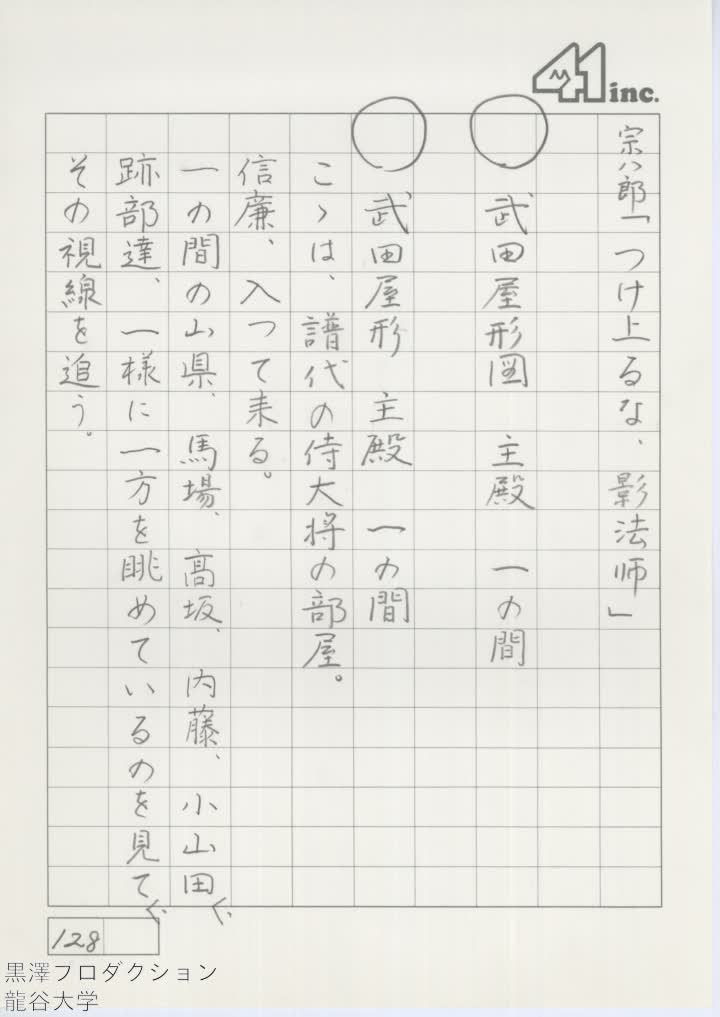 41 inc.
宗八郎「つけ上るな、影法師」
○ 武田屋形図 主殿 一の間
○ 武田屋形 主殿 一の間
こゝは、譜代の侍大将の部屋。
信廉、入って来る。
一の間の山県、馬場、高坂、内藤、小山田、
跡部達、一様に一方を眺めているのを見て、
その視線を追う。
128
黒澤プロダクション
龍谷大学